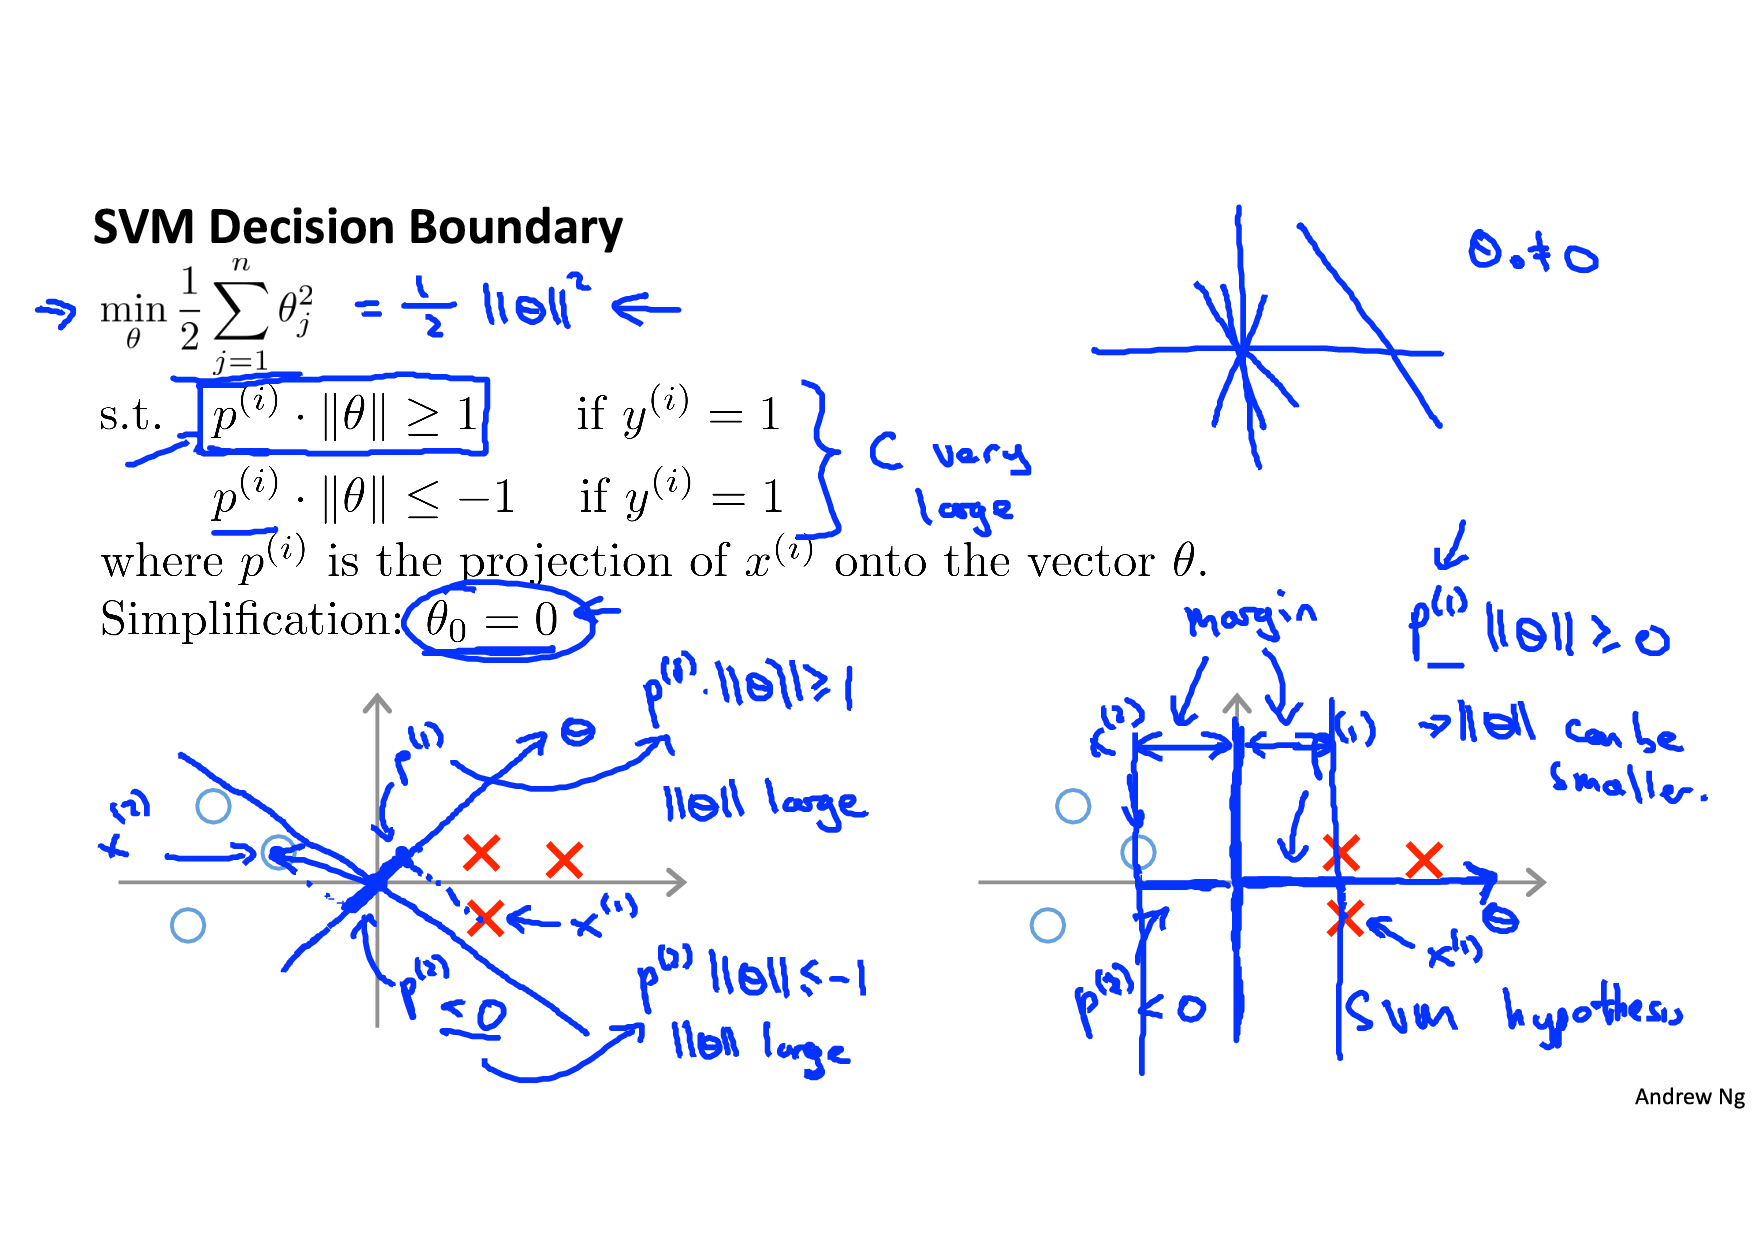 SVM Decision Boundary
⇒ min_θ 1/2 ∑_{j=1}^{n} θ_j^2 = 1/2 ||θ||^2 ←
θ₀ ≠ 0
s.t. p^(i) · ‖θ‖ ≥ 1 if y^(i) = 1
p^(i) · ‖θ‖ ≤ −1 if y^(i) = 1
C very
large
where p^(i) is the projection of x^(i) onto the vector θ.
Simplification: θ₀ = 0
p^(i) · ||θ|| ≥ 1
θ
p^(1)
||θ|| large
x^(2)
x^(1)
p^(2)
< 0
p^(2) ||θ|| ≤ -1
||θ|| large
margin
p^(1) ||θ|| ≥ 0
→ ||θ|| can be
smaller.
x^(2)
p^(1)
θ
x^(1)
p^(2) < 0
SVM hypothesis
Andrew Ng